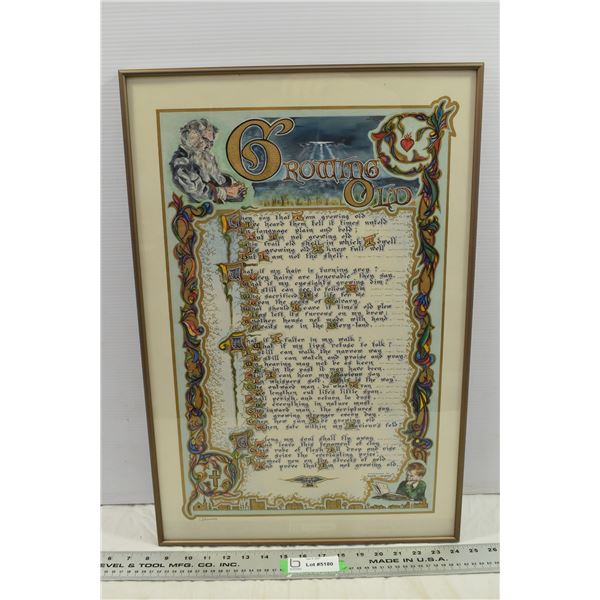 Growing
Old
They say that I am growing old
I've heard them tell it times untold
In language plain and bold
But I'm not growing old
This frail old shell in which I dwell
Is growing old I know full well
But I am not the shell.
What if my hair is turning grey?
Grey hairs are honorable they say.
What if my eyesight's growing dim?
I still can see to follow Him
Who sacrificed His life for me
Upon the cross of Calvary.
What should I care if time's old plow
Has left its furrows on my brow;
Another house not made with hand
Awaits me in the Glory-land.
What if I falter in my walk?
What if my lips refuse to talk?
I still can walk the narrow way
I still can watch and praise and pray!
My hearing may not be as keen
As in the past it may have been.
Still I can hear my Saviour say
In whispers soft, This is the way.
The outward man, do what I can
To lengthen out life's little span,
Shall perish, and return to dust
As everything in nature must.
The inward man, the scriptures say,
Is growing stronger every day.
Then how can I be growing old
When safe within my Saviour's fold
Ere long my soul shall fly away
And leave this tenement of clay
This robe of flesh I'll drop and rise
To seize the "everlasting prize"
I'll meet you on the streets of gold
And prove that I'm not growing old.
6 7 8 9 10 11 12 13 14 15 16 17 18 19 20 21 22 23 24 25 26
LEVEL & TOOL MFG. CO. INC.
b
Lot #5180
MADE IN U.S.A.